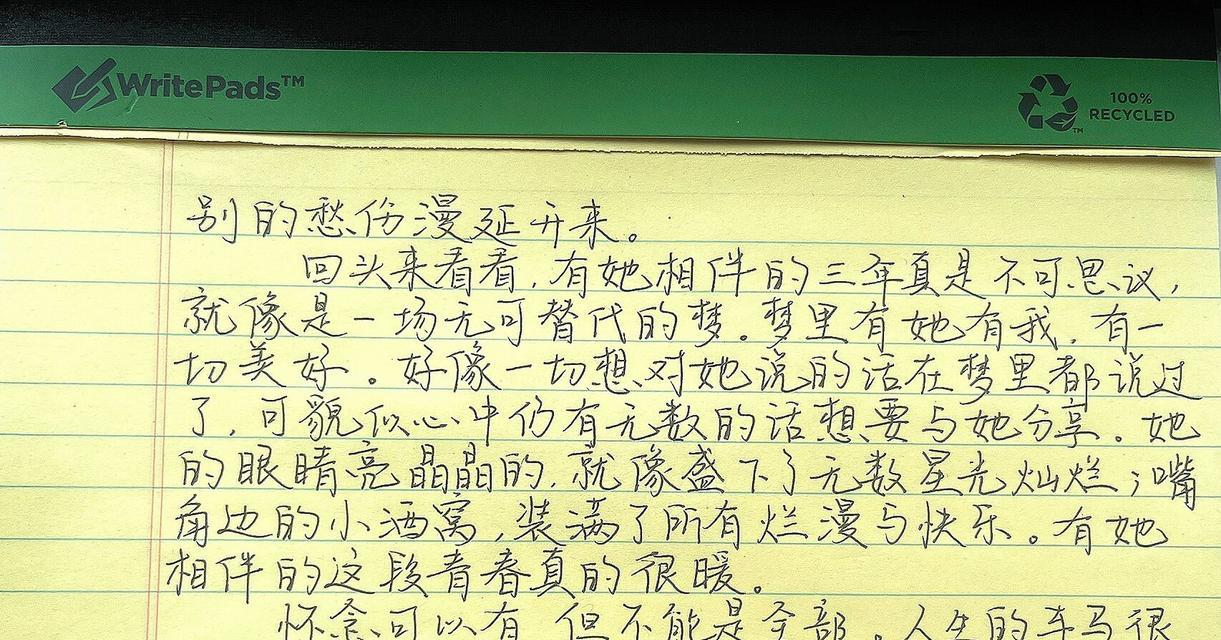 WritePads™
100%
RECYCLED
别的愁伤漫延开来。
回头来看看,有她相伴的三年真是不可思议,
就像是一场无可替代的梦。梦里有她有我,有一
切美好。好像一切想对她说的话在梦里都说过
了,可貌似心中仍有无数的话想要与她分享。她
的眼睛亮晶晶的,就像盛下了无数星光灿烂;嘴
角边的小酒窝,装满了所有烂漫与快乐。有她
相伴的这段青春真的很暖。
怀念可以有,但不能是全部。人生的车马很